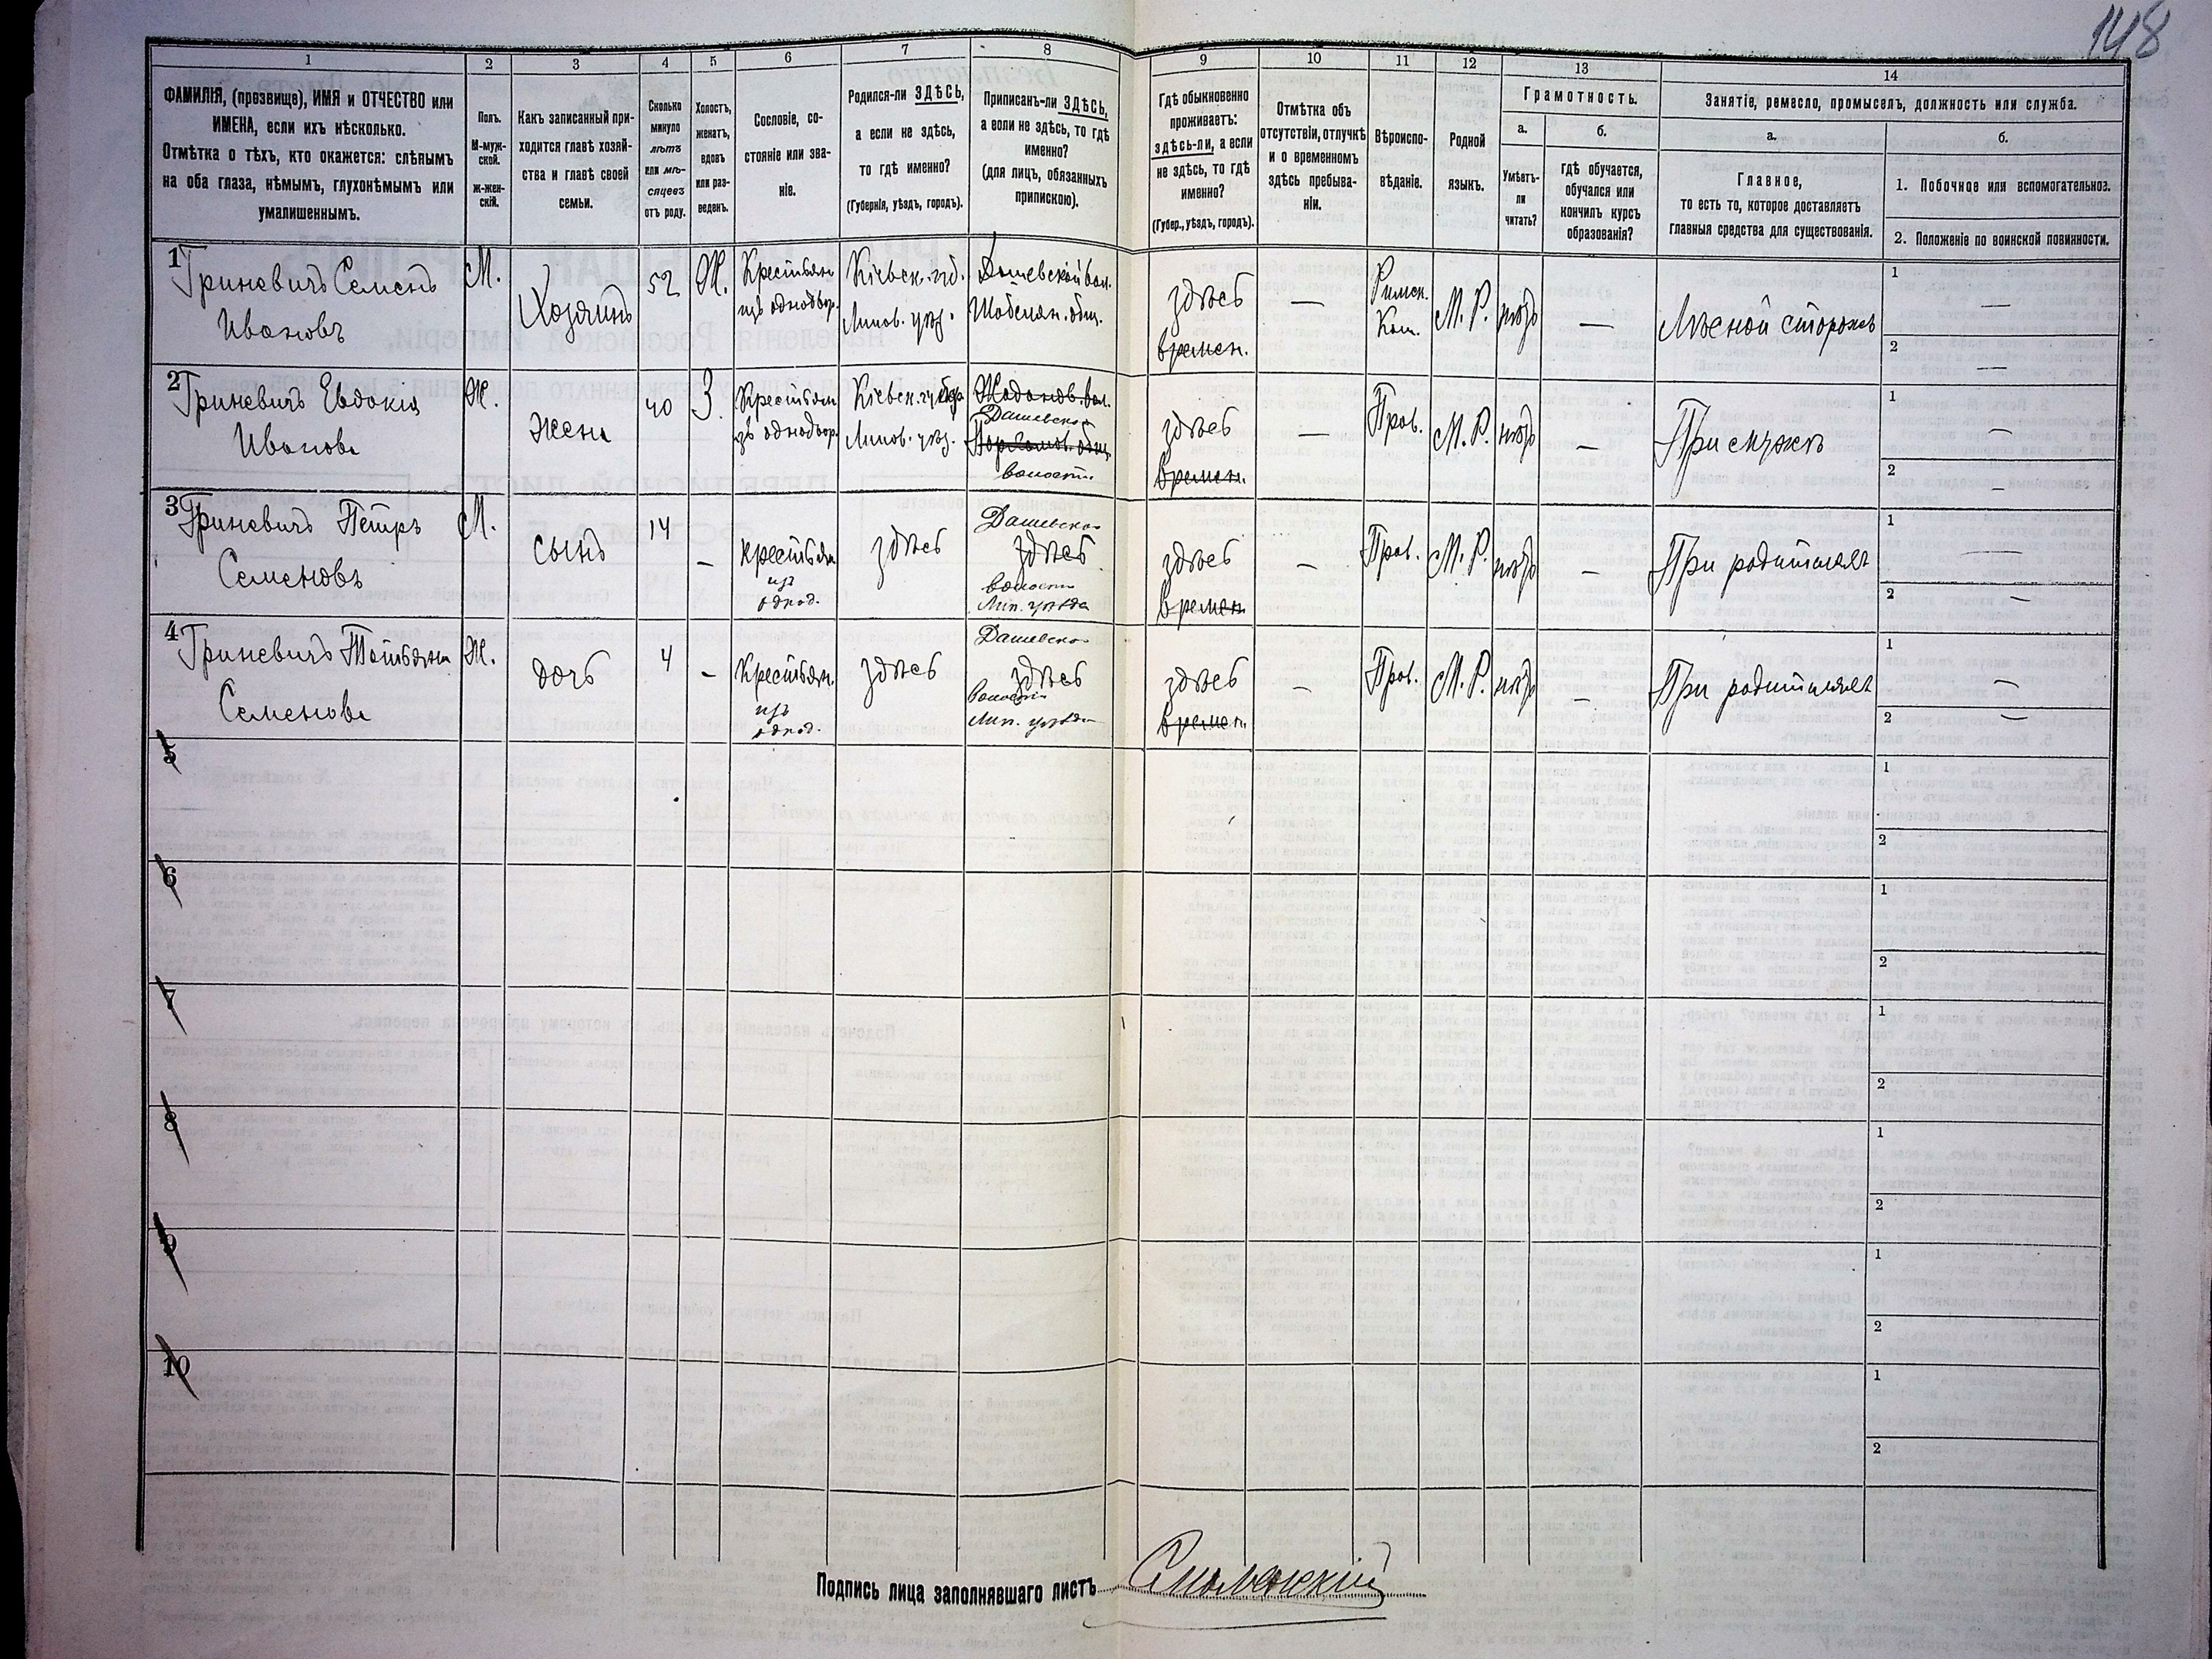 148
1 2 3 4 5 6 7 8 9 10 11 12 13 14
ФАМИЛІЯ, (прозвище), ИМЯ и ОТЧЕСТВО или
ИМЕНА, если ихъ нѣсколько.
Отмѣтка о тѣхъ, кто окажется: слѣпымъ
на оба глаза, нѣмымъ, глухонѣмымъ или
умалишеннымъ.
Полъ.
М-муж-
ской.
Ж-жен-
скій.
Какъ записанный при-
ходится главѣ хозяй-
ства и главѣ своей
семьи.
Сколько
минуло
лѣтъ
или мѣ-
сяцевъ
отъ роду.
Холостъ,
женатъ,
вдовъ
или раз-
веденъ.
Сословіе, со-
стояніе или зва-
ніе.
Родился-ли ЗДѢСЬ,
а если не здѣсь,
то гдѣ именно?
(Губернія, уѣздъ, городъ).
Приписанъ-ли ЗДѢСЬ,
а если не здѣсь, то гдѣ
именно?
(для лицъ, обязанныхъ
припискою).
Гдѣ обыкновенно
проживаетъ:
здѣсь-ли, а если
не здѣсь, то гдѣ
именно?
(Губер., уѣздъ, городъ).
Отмѣтка объ
отсутствіи, отлучкѣ
и о временномъ
здѣсь пребыва-
ніи.
Вѣроиспо-
вѣданіе.
Родной
языкъ.
Грамотность.
а. б.
Умѣетъ-
ли
читать?
гдѣ обучается,
обучался или
кончилъ курсъ
образованія?
Занятіе, ремесло, промыселъ, должность или служба.
а. б.
Главное,
то есть то, которое доставляетъ
главныя средства для существованія.
1. Побочное или вспомогательное.
2. Положеніе по воинской повинности.
1 Гриневичъ Семенъ
Ивановъ
М.
Хозяинъ
52
Ж.
Крестьян
изъ однодвор.
Кіевск. губ.
Липов. уѣз.
Дашевской вол.
общ.
здѣсь
времен.
—
Римск.
Кат.
М. Р.
нѣтъ
—
Лѣсной сторожъ
1 —
2 —
2 Гриневичъ Евдокія
Иванова
Ж.
жена
40
З.
Крестьян
изъ однодвор.
Кіевск. губер.
Липов. уѣз.
Дашевской
волости
здѣсь
времен.
—
Прав.
М. Р.
нѣтъ
—
При мужѣ
1 —
2 —
3 Гриневичъ Петръ
Семеновъ
М.
сынъ
14
—
крестьян
изъ
однод.
здѣсь
Дашевской
здѣсь
волости
Лип. уѣзда
здѣсь
времен
—
Прав.
М. Р.
нѣтъ
—
При родителяхъ
1 —
2 —
4 Гриневичъ Татьяна
Семенова
Ж.
дочь
4
—
Крестьян.
изъ
однод.
здѣсь
Дашевской
здѣсь
волости
Лип. уѣзда
здѣсь
времен.
—
Прав.
М. Р.
нѣтъ
—
При родителяхъ
1 —
2 —
5
1
2
6
1
2
7
1
2
8
1
2
9
1
2
10
1
2
Подпись лица заполнявшаго листъ